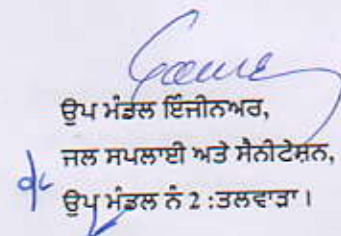 ਉਪ ਮੰਡਲ ਇੰਜੀਨਅਰ,
ਜਲ ਸਪਲਾਈ ਅਤੇ ਸੈਨੀਟੇਸ਼ਨ,
ਉਪ ਮੰਡਲ ਨੰ 2 :ਤਲਵਾੜਾ।